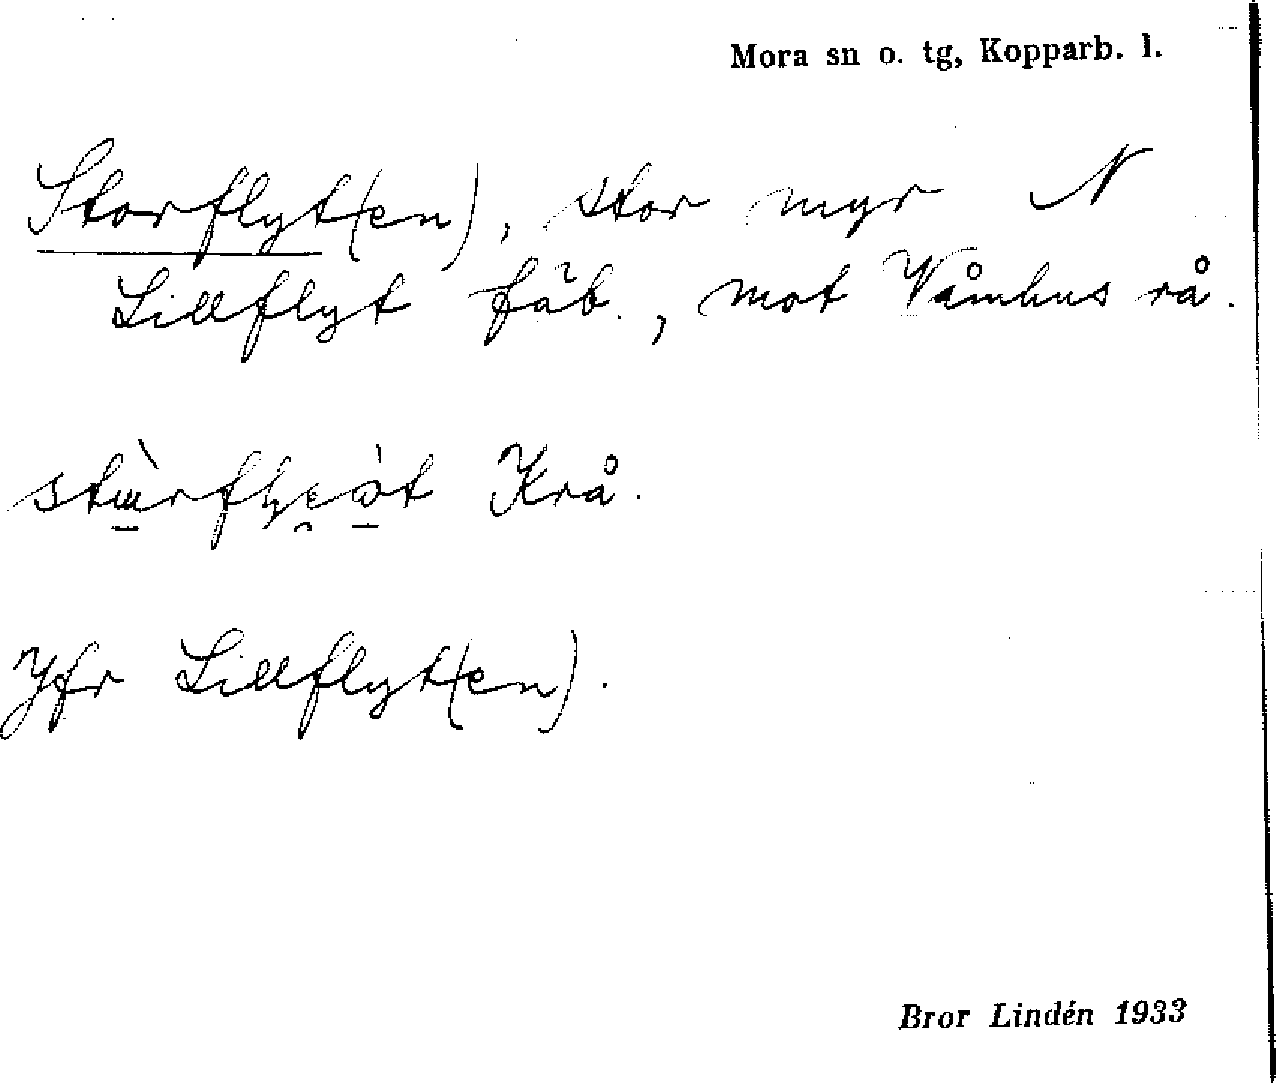 Mora sn o. tg, Kopparb. l.
Storflyt(en), stor myr N
Lillflyt fäb., mot Våmhus rå.
Krå.
Jfr Lillflyt(en).
Bror Lindén 1933